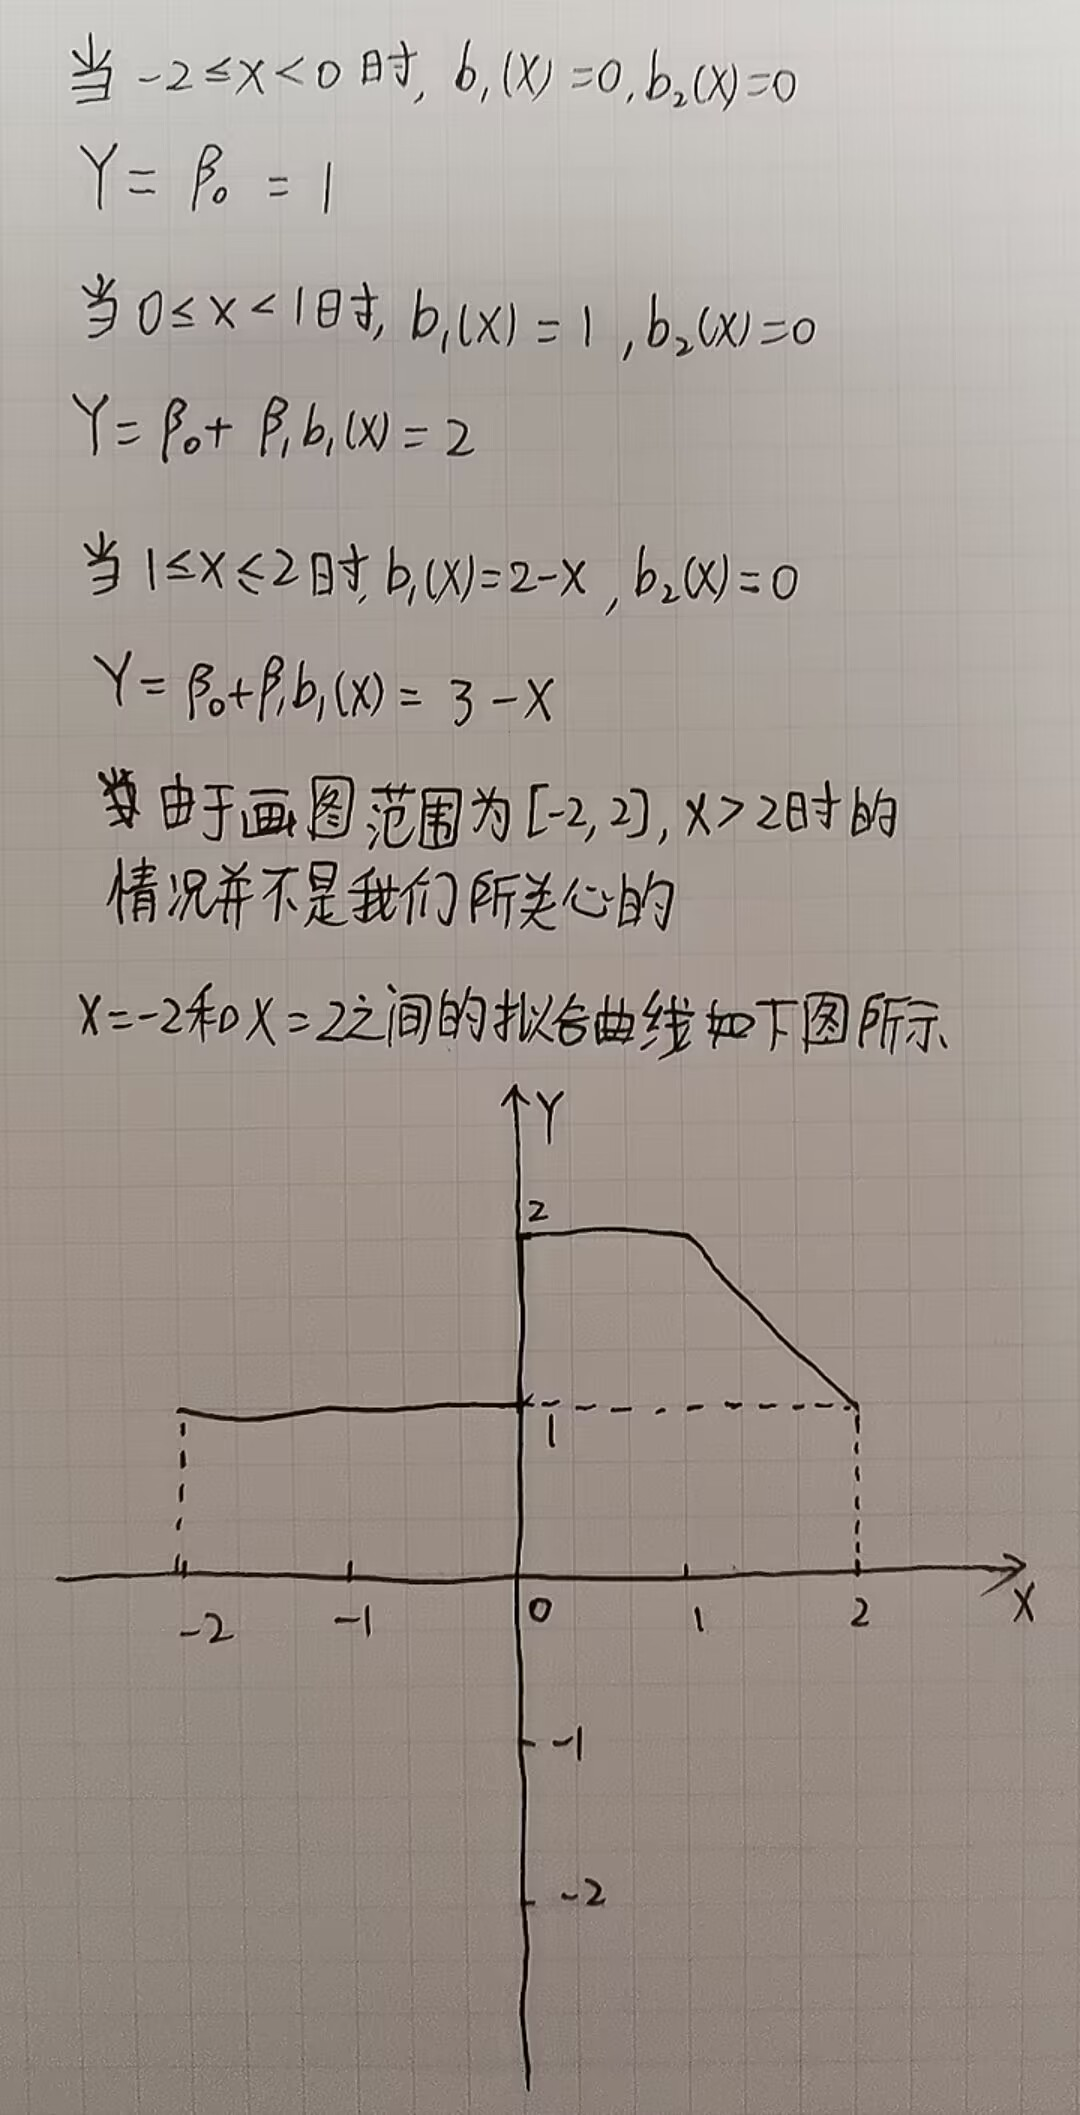 当 -2≤x<0时, b₁(X)=0, b₂(X)=0
Y= β₀ = 1
当 0≤x<1时, b₁(X)=1, b₂(X)=0
Y= β₀+ β₁b₁(X)=2
当 1≤x≤2时, b₁(X)=2-X, b₂(X)=0
Y= β₀+β₁b₁(X)= 3-X
由于画图范围为[-2,2], X>2时的
情况并不是我们所关心的
X=-2和X=2之间的拟合曲线如下图所示
Y
2
1
-2 -1 0 1 2 X
-1
-2